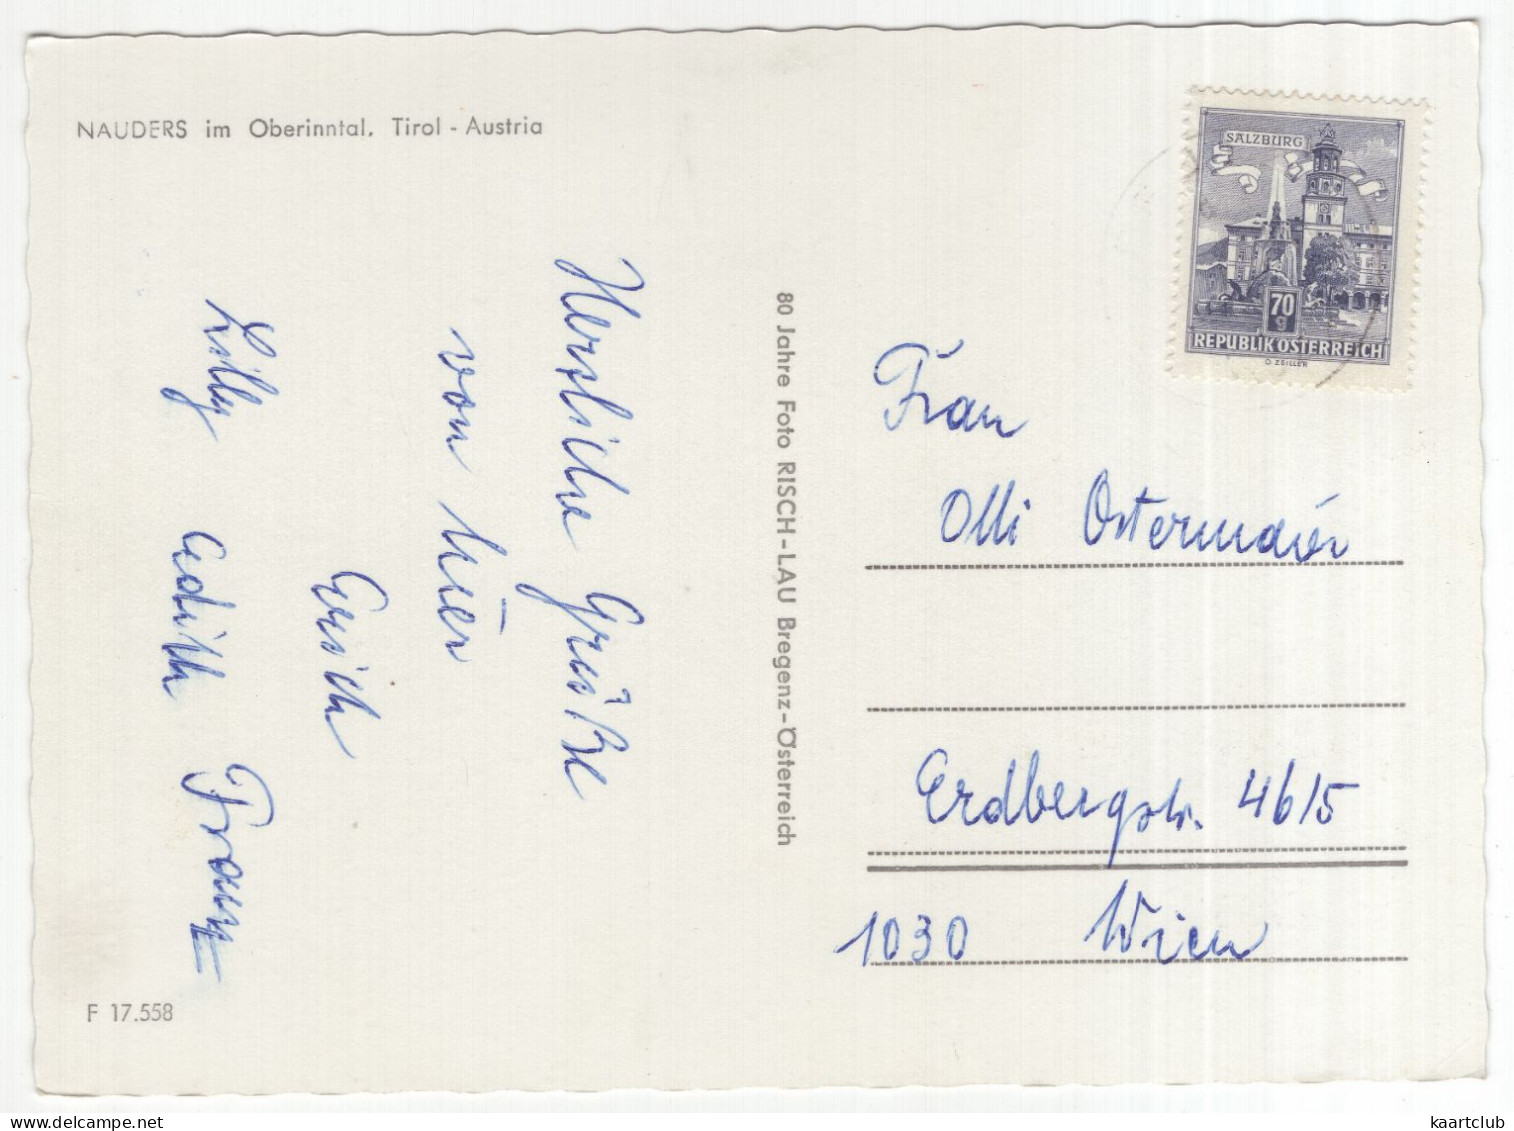 NAUDERS im Oberinntal. Tirol - Austria
Herzliche Grüße
von hier
Erich
Lilly Edith Franz
F 17.558
80 Jahre Foto RISCH-LAU Bregenz-Österreich
SALZBURG
70
g
REPUBLIK ÖSTERREICH
O. ZEILLER
Frau
Olli Ostermaier
Erdbergstr. 46/5
1030 Wien
www.delcampe.net
kaartclub